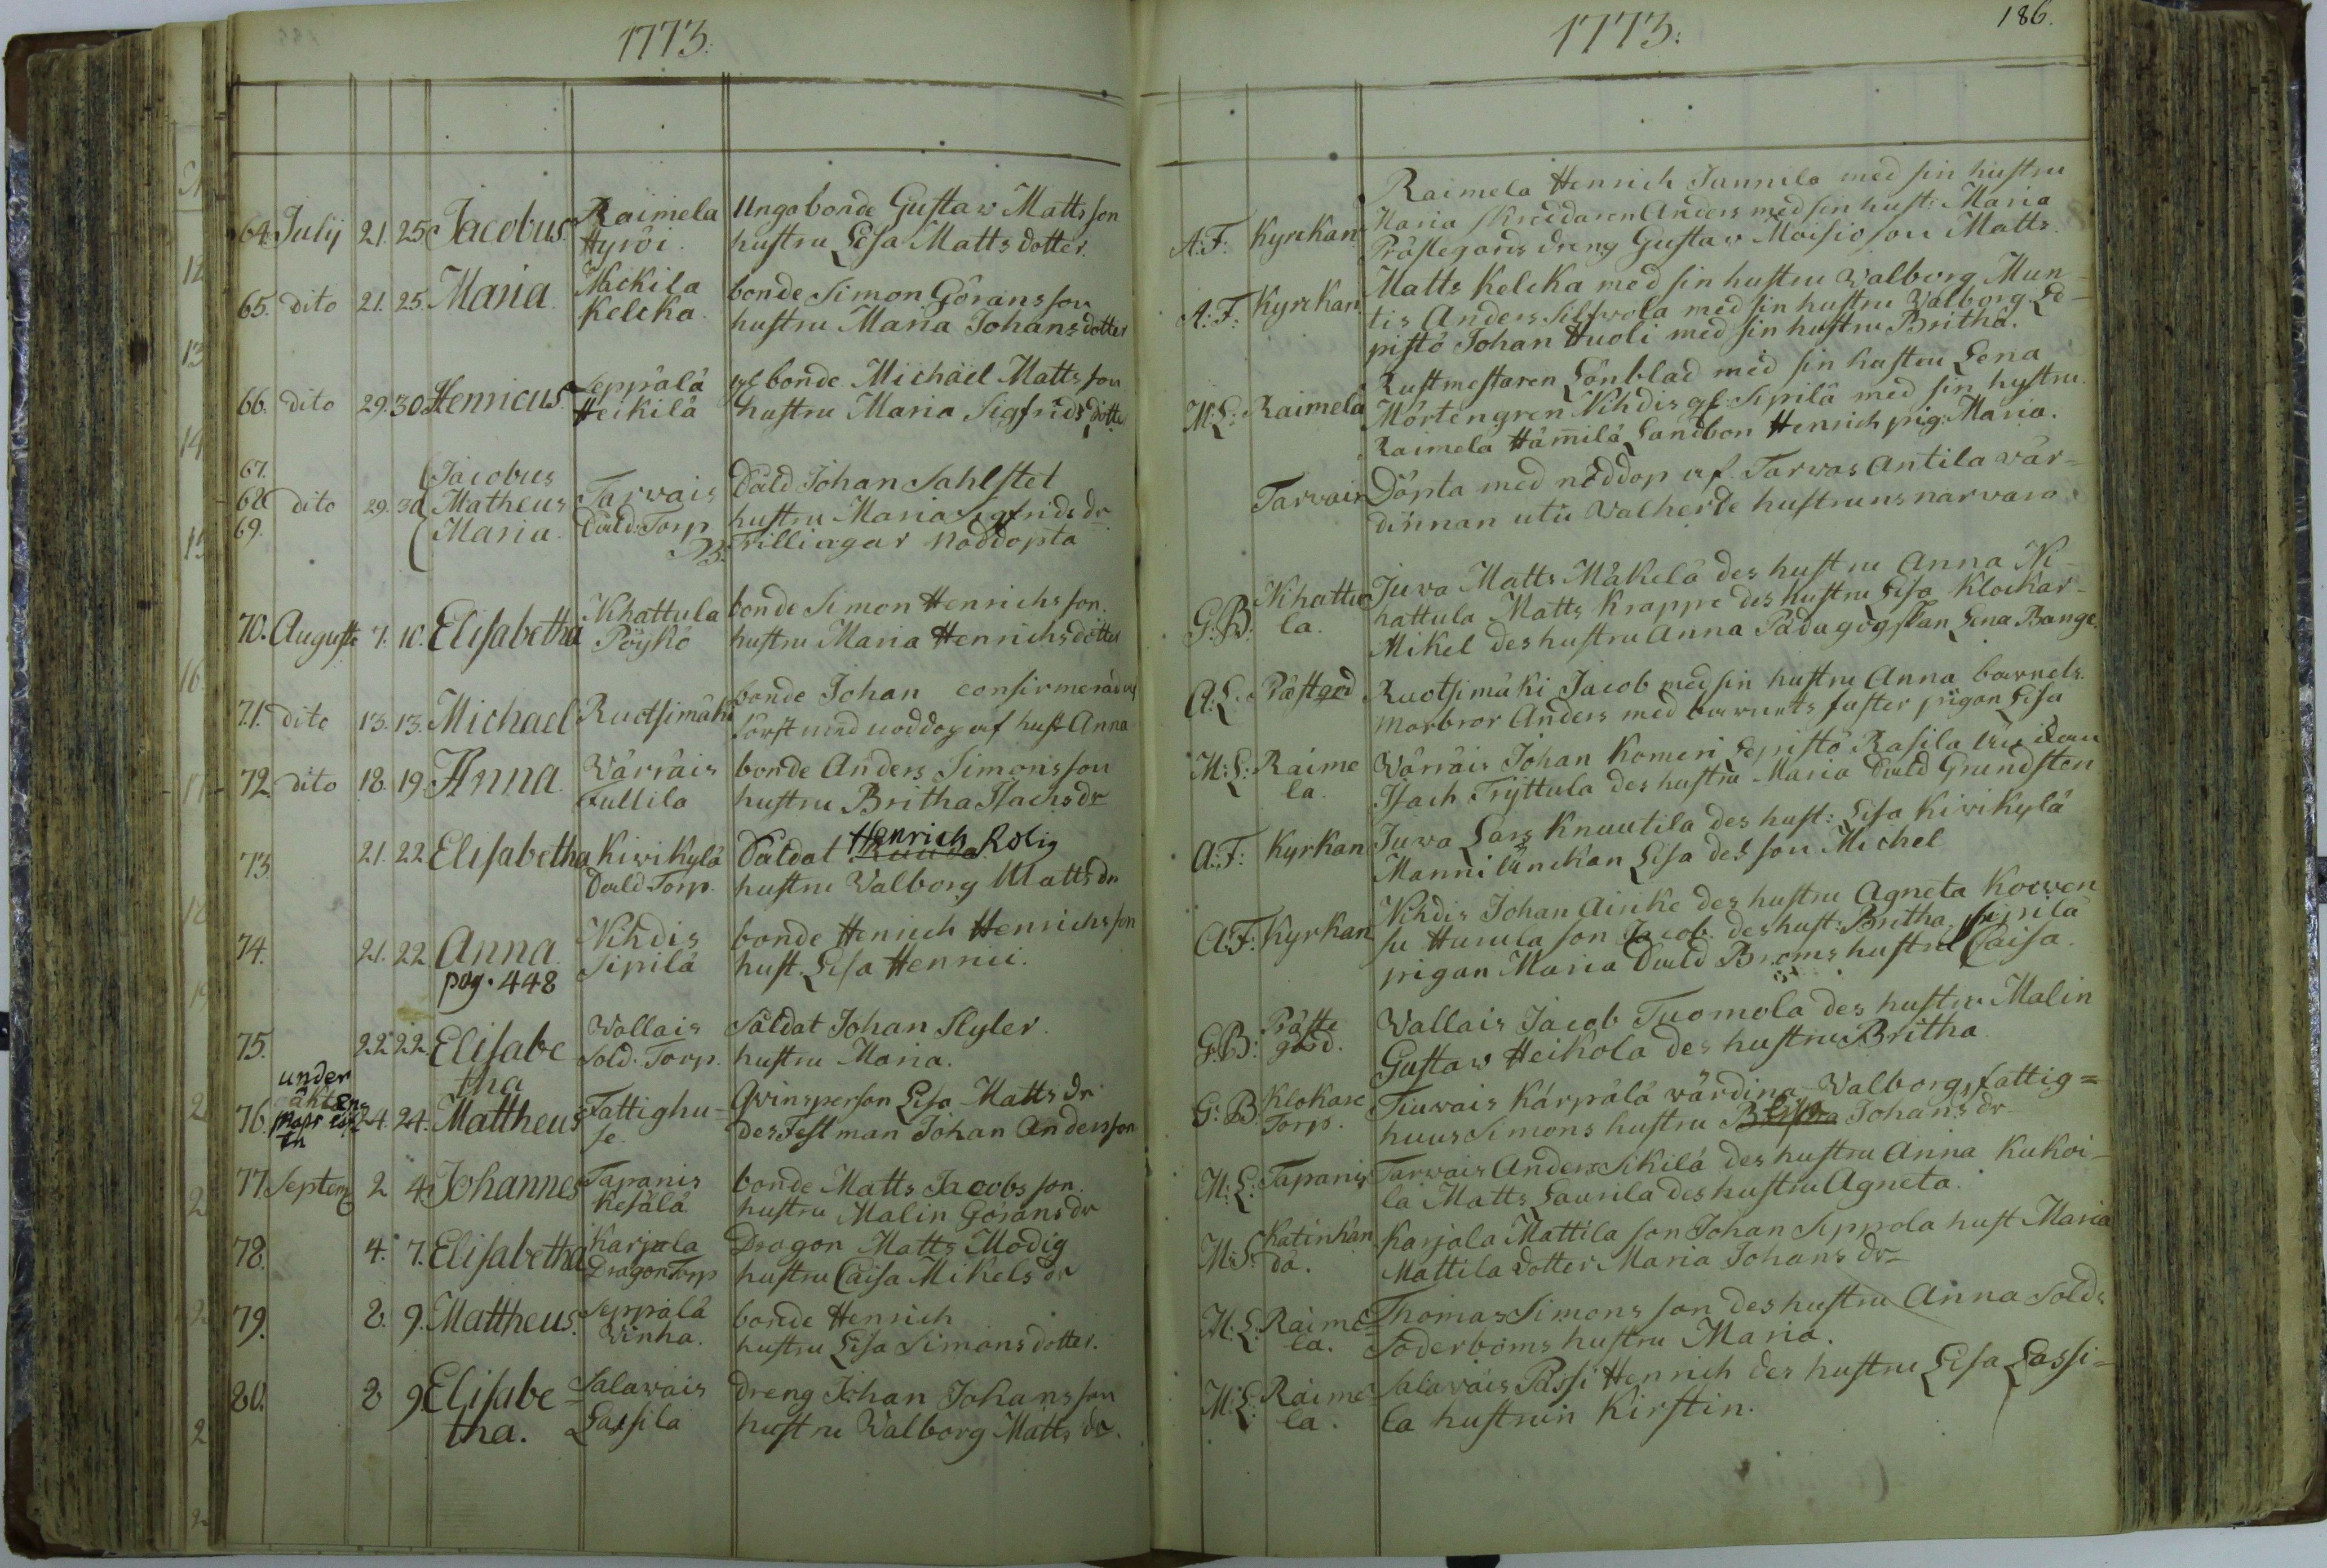 1773.
64. Julij 21. 25. Jacobus. Raimela Ungabonde Gustaw Matts son
Hyröi. hustru Lisa Matts dotter.
65. dito 21. 25. Maria. Mickila bonde Simon Görans son
Kelcka. hustru Maria Johans dotter
66. dito 29. 30. Henricus Seppälä bonde Michäel Matts son
Heikilä hustru Maria Sigfrids dotter
67. Jacobus
68 dito 29. 30 Matheus Tarvais Sald Johan Sahlstet
hustru Maria Sigfrids dr
69. Maria. Sald. Torp
NB. Trillingar nöddöpta
70. Augusti 7. 10. Elisabetha Nihattula bonde Simon Henrichs son.
Pöykö hustru Maria Henrichs dotter
71. dito 13. 13. Michael Ruotsimäki bonde Johan confirmerad
först med nöddop af hust Anna
72. dito 18. 19. Anna. Värräis bonde Anders Simons son
Tullila hustru Britha Isachs dr
73 21. 22. Elisabetha Kivikylä Saldat Henrich Rolig
Sald Torp. hustru Valborg Matts dr
74. 21. 22. Anna. Nihdis bonde Henrich Henrichs son
pag. 448 Sipilä hust. Lisa Henrici.
75. 22 22. Elisabe Vallais Säldat Johan Skyler.
tha Sold. Torp. hustru Maria.
under
76. 24. 24. Mattheus Fattighu- Qvinsperson Lisa Matts dr
se. des Fest man Johan Andersson
77. Septemb 2 4. Johannes Tapanis bonde Matts Jacobs son.
Kesälä hustru Malin Görans dr
78. 4. 7. Elisabetha Karjala Dragon Matts Modig
Dragon Torp hustru Caisa Mikels dr
79. 8. 9. Mattheus. Seppälä bonde Henrich
Vinha. hustru Lisa Simons dotter.
80. 8 9. Elisabe- Salavais Dreng Johan Johans son
tha. Lassila hustru Valborg Matts dr.
1773.
186.
Raimela Henrich Junnila med sin hustru
A:F: Kyrckan Maria Skreddaren Anders med sin hust: Maria
Prästegårds dreng Gustaw Moisio son Matts.
Matts Kelcka med sin hustru Valborg Mun-
A:F: Kyrckan tis Anders Silfvola med sin hustru Valborg. Le-
pistö Johan Huoli med sin hustru Britha.
Rustmestaren Lönblad med sin hustru Lena
M:L: Raimela Mörtengren Nihdis gf: Sipilä med sin hustru.
Raimela Hämilä Landbon Henrich pig: Maria.
Tarvais Döpta med nöddop af Tarvas Antila vär-
dinnan uti hustruns närvaro.
Nihattu Juva Matts Mäkelä des hustru Anna Ni-
G:B: la. hattula Matts Krappe des hustru Lisa Klockar-
Mikel des hustru Anna Pädagogskan Lena Bange.
A:L: Prästgod Ruotsimäki Jacob med sin hustru Anna barnets.
Morbror Anders med barnets faster pigan Lisa
M:L: Raime Värräis Johan Komeri Lepistö Rasila
la. Isach Tryttula des hustru Maria Sald Grundsten
A:F: Kyrkan Juva Lars Knuutila des hust: Lisa Kivikylä
Manni Lisa des son Michel
Nihdis Johan Ainke des hustru Agneta Koiven
A:F: Kyrkan su Huuula son Jacob des hust: Britha, Sipilä
pigan Maria Sald Broms hustru Caisa.
Präste Vallais Jacob Tuomola des hustru Malin
G:B: gård. Gustaw Heikola des hustru Britha
G:B Klokare Tiuvais Kärpälä värdina Valborg, fattig=
Torp. huus Simons hustru Johans dr
M:L: Tapanis Tarvais Anders Sikilä des hustru Anna Kukoi-
la Matts Laurila des hustru Agneta.
M:L: Katinhän Karjala Mattila son Johan Seppola hust Maria
dä. Mattila dotter Maria Johans dr
M:L: Raime- Thomas Simons son des hustru Anna Solds
la. Söderboms hustru Maria.
M:L: Raime- Salavais Passi Henrich des hustru Lisa Lassi=
la. la hustrun Kirstin.